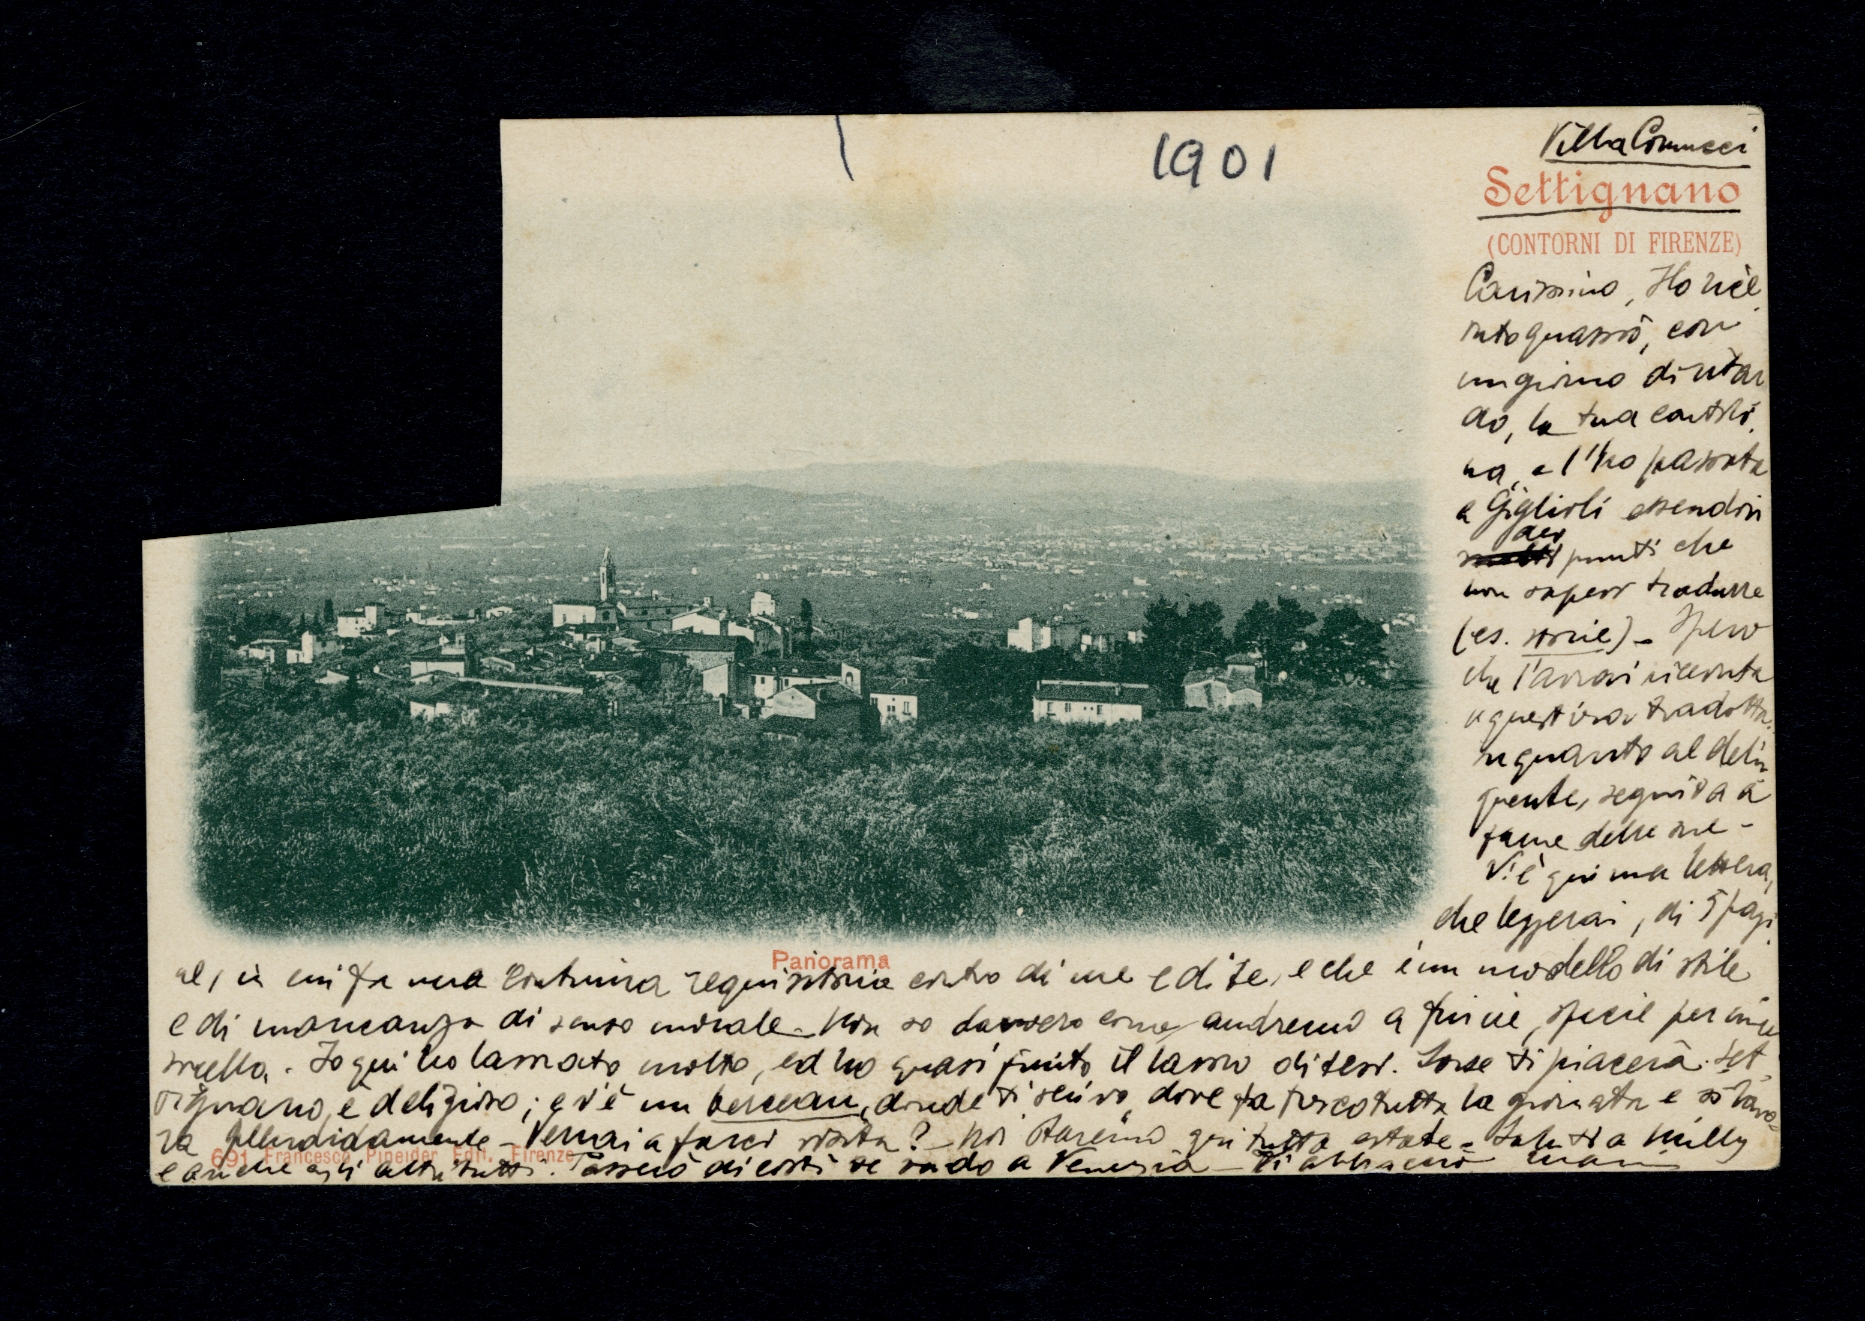 1901
Villa Comucci
Settignano
(CONTORNI DI FIRENZE)
Carissimo, Ho rice
vuto quassù, con
un giorno di ritar
do, la tua cartoli
na, e l'ho passata
a Giglioli essendovi
dei punti che
non saprei tradurre
(es. ). Spero
che l'avrai ricevuta
a quest'ora tradotta.
In quanto al delin
quente, seguita a
farne delle sue -
V'è qui una lettera,
che leggerai, di 5 pagi
Panorama
ne, in cui fa una continua requisitoria contro di me e di te, e che è un modello di stile
e di mancanza di senso morale. Non so davvero come andremo a finire, specie per mia
sorella. Io qui ho lavorato molto, ed ho quasi finito il lavoro di tesi. Forse ti piacerà. Set
tignano, è delizioso; c'è un berceau, donde ti scrivo, dove fa fresco tutta la giornata e si lavo=
ra splendidamente. Verrai a farci visita? Noi staremo qui tutta estate. Saluti a Milly
691 Francesco Pineider Edit. Firenze
e anche agli altri tutti. Passerò di costì se vado a Venezia. Ti abbraccio